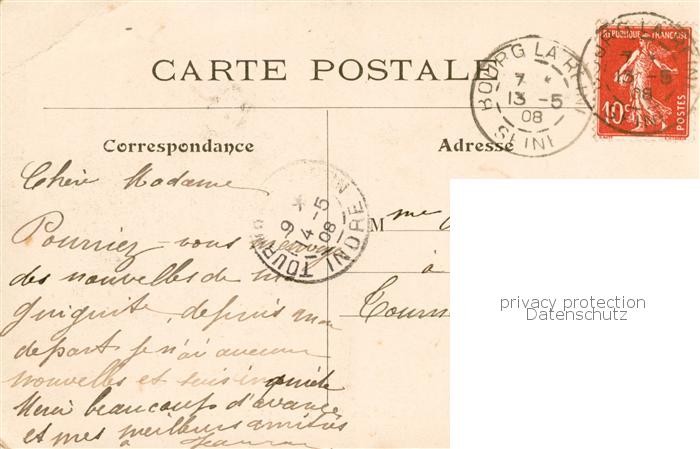 CARTE POSTALE
BOURG LA REINE
7 *
13 -5
08
SEINE
REPUBLIQUE FRANÇAISE
10c
POSTES
Correspondance
Adresse
Chère Madame
9 *
14 -5
08
INDRE
Pourriez-vous m'envoyer
des nouvelles de ma
guiguite, depuis mon
depart je n'ai aucune
nouvelles et suis inquiète
Merci beaucoup d'avance
et mes meilleurs amitiés
à
Mme
à
Tourn
privacy protection
Datenschutz